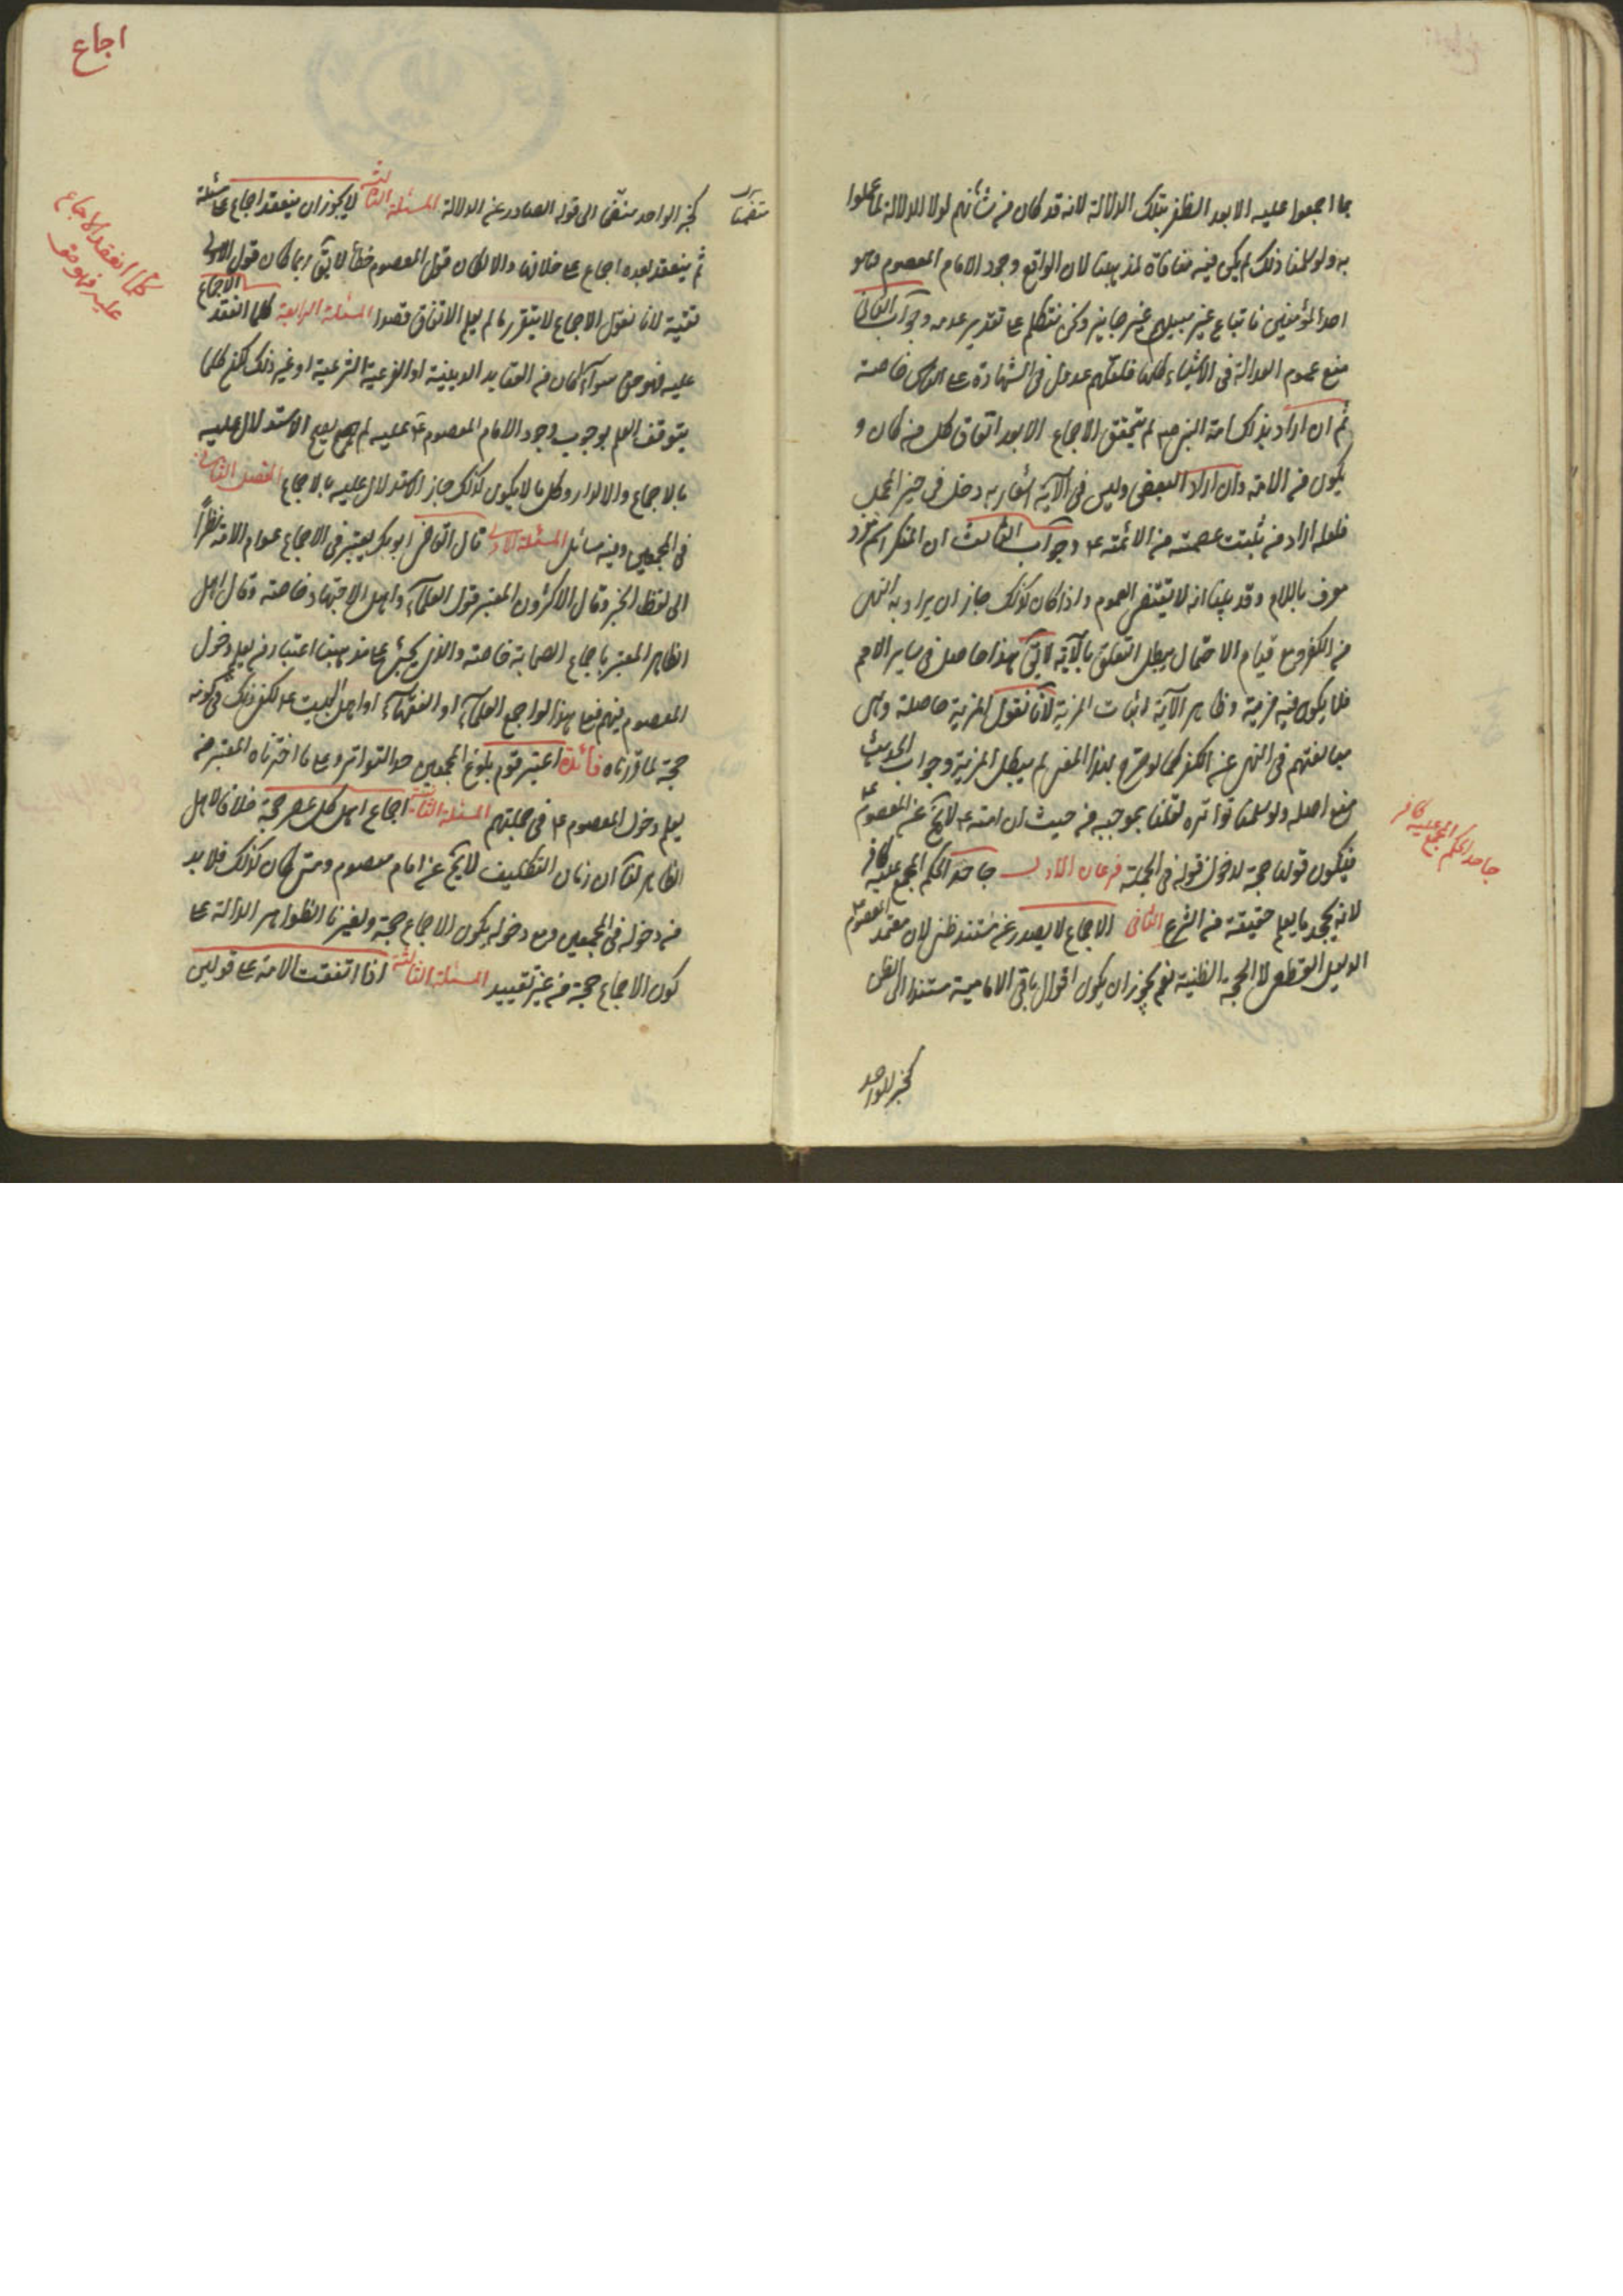 بما اجمعوا عليه الا بعد الظفر بتلك الدلالة لانه قد كان من شأنهم لولا الدلالة لما عملوا
به ولو سلمنا ذلك لم يكن فيه منافاة لمذهبنا لان الواقع وجود الامام المعصوم وهو
احد المؤمنين فاتباع غير سبيلهم غير جايز ولكن نتكلم على تقدير عدمه وجواب الثانى
منع عموم العدالة فى الاشياء كلها فلعلهم عدول فى الشهادة على الناس خاصة
ثم ان اراد بذلك امة النبى صم لم يتحقق الاجماع الا بعد اتفاق كل من كان و
يكون من الامة وان اراد البعض وليس فى الآية اشعار به دخل فى حيز المجمل
فلعله اراد من ثبتت عصمته من الائمة ع وجواب الثالث ان المنكر اسم مفرد
معرف باللام وقد بينا انه لا يقتضى العموم واذا كان كذلك جاز ان يراد به النهى
من الكفر ومع قيام الاحتمال يبطل التعلق بالآية لا يق هذا حاصل فى ساير الامم
فلا يكون فيه مزية وظاهر الآية اثبات المزية لانا نقول المزية حاصلة وهى
مبالغتهم فى النهى عن الكفر كما لو صرح بهذا المعنى لم يبطل المزية وجواب الحديث
منع اصله ولو سلمنا تواتره لقلنا بموجبه من حيث ان امته ع لا يخ عن المعصوم ع
فيكون قولها حجة لدخول قوله فى الجملة فرعان الاول جاحد الحكم المجمع عليه كافر
لانه يجحد ما يعلم حقيقته من الشرع الثانى الاجماع لا يصدر عن مستند ظنى لان معتمد المعصوم ع
الدليل القطعى لا الحجة الظنية نعم يجوز ان يكون اقوال باقى الامامية مستندا الى الظن
كخبر الواحد
جاحد الحكم المجمع عليه كافر
اجماع
كخبر الواحد منضما الى قوله الصادر عن الدلالة المسئلة الثالثة لا يجوز ان ينعقد اجماع على مسئلة
ثم ينعقد بعده اجماع على خلافها والا لكان قول المعصوم خطأ لا يق ربما كان قول الاول
تقية لانا نقول الاجماع لا يتقرر ما لم يعلم الاتفاق قصدا المسئلة الرابعة كلما انعقد الاجماع
عليه فهو حق سواء كان من العقايد الدينية او الفرعية الشرعية او غير ذلك لكن كلما
يتوقف العلم بوجوب وجود الامام المعصوم ع عليه لم يصح الاستدلال عليه
بالاجماع والا لدار وكل ما لا يكون كذلك جاز الاستدلال عليه بالاجماع الفصل الثانى
فى المجمعين وفيه مسائل المسئلة الاولى قال القاضى ابو بكر يعتبر فى الاجماع عوام الامة نظرا
الى لفظ الخبر وقال الاكثرون المعتبر قول العلماء واهل الاجتهاد خاصة وقال اهل
الظاهر المعتبر باجماع الصحابة خاصة والذى يجئ على مذهبنا اعتبار من يعلم دخول
المعصوم فيهم فعلى هذا لو اجمع العلماء او الفقهاء او اهل البيت ع لكفى ذلك فى كونه
حجة لما قررناه فائدة اعتبر قوم بلوغ المجمعين حد التواتر وعلى ما اخترناه المعتبر من
يعلم دخول المعصوم ع فى جملتهم المسئلة الثانية اجماع اهل كل عصر حجة خلافا لاهل
الظاهر لنا ان زمان التكليف لا يخ عن امام معصوم ومتى كان كذلك فلا بد
من دخوله فى المجمعين ومع دخوله يكون الاجماع حجة ولغيرنا الظواهر الدالة على
كون الاجماع حجة من غير تقييد المسئلة الثالثة اذا اتفقت الامة على قولين
كلما انعقد الاجماع
عليه فهو حق